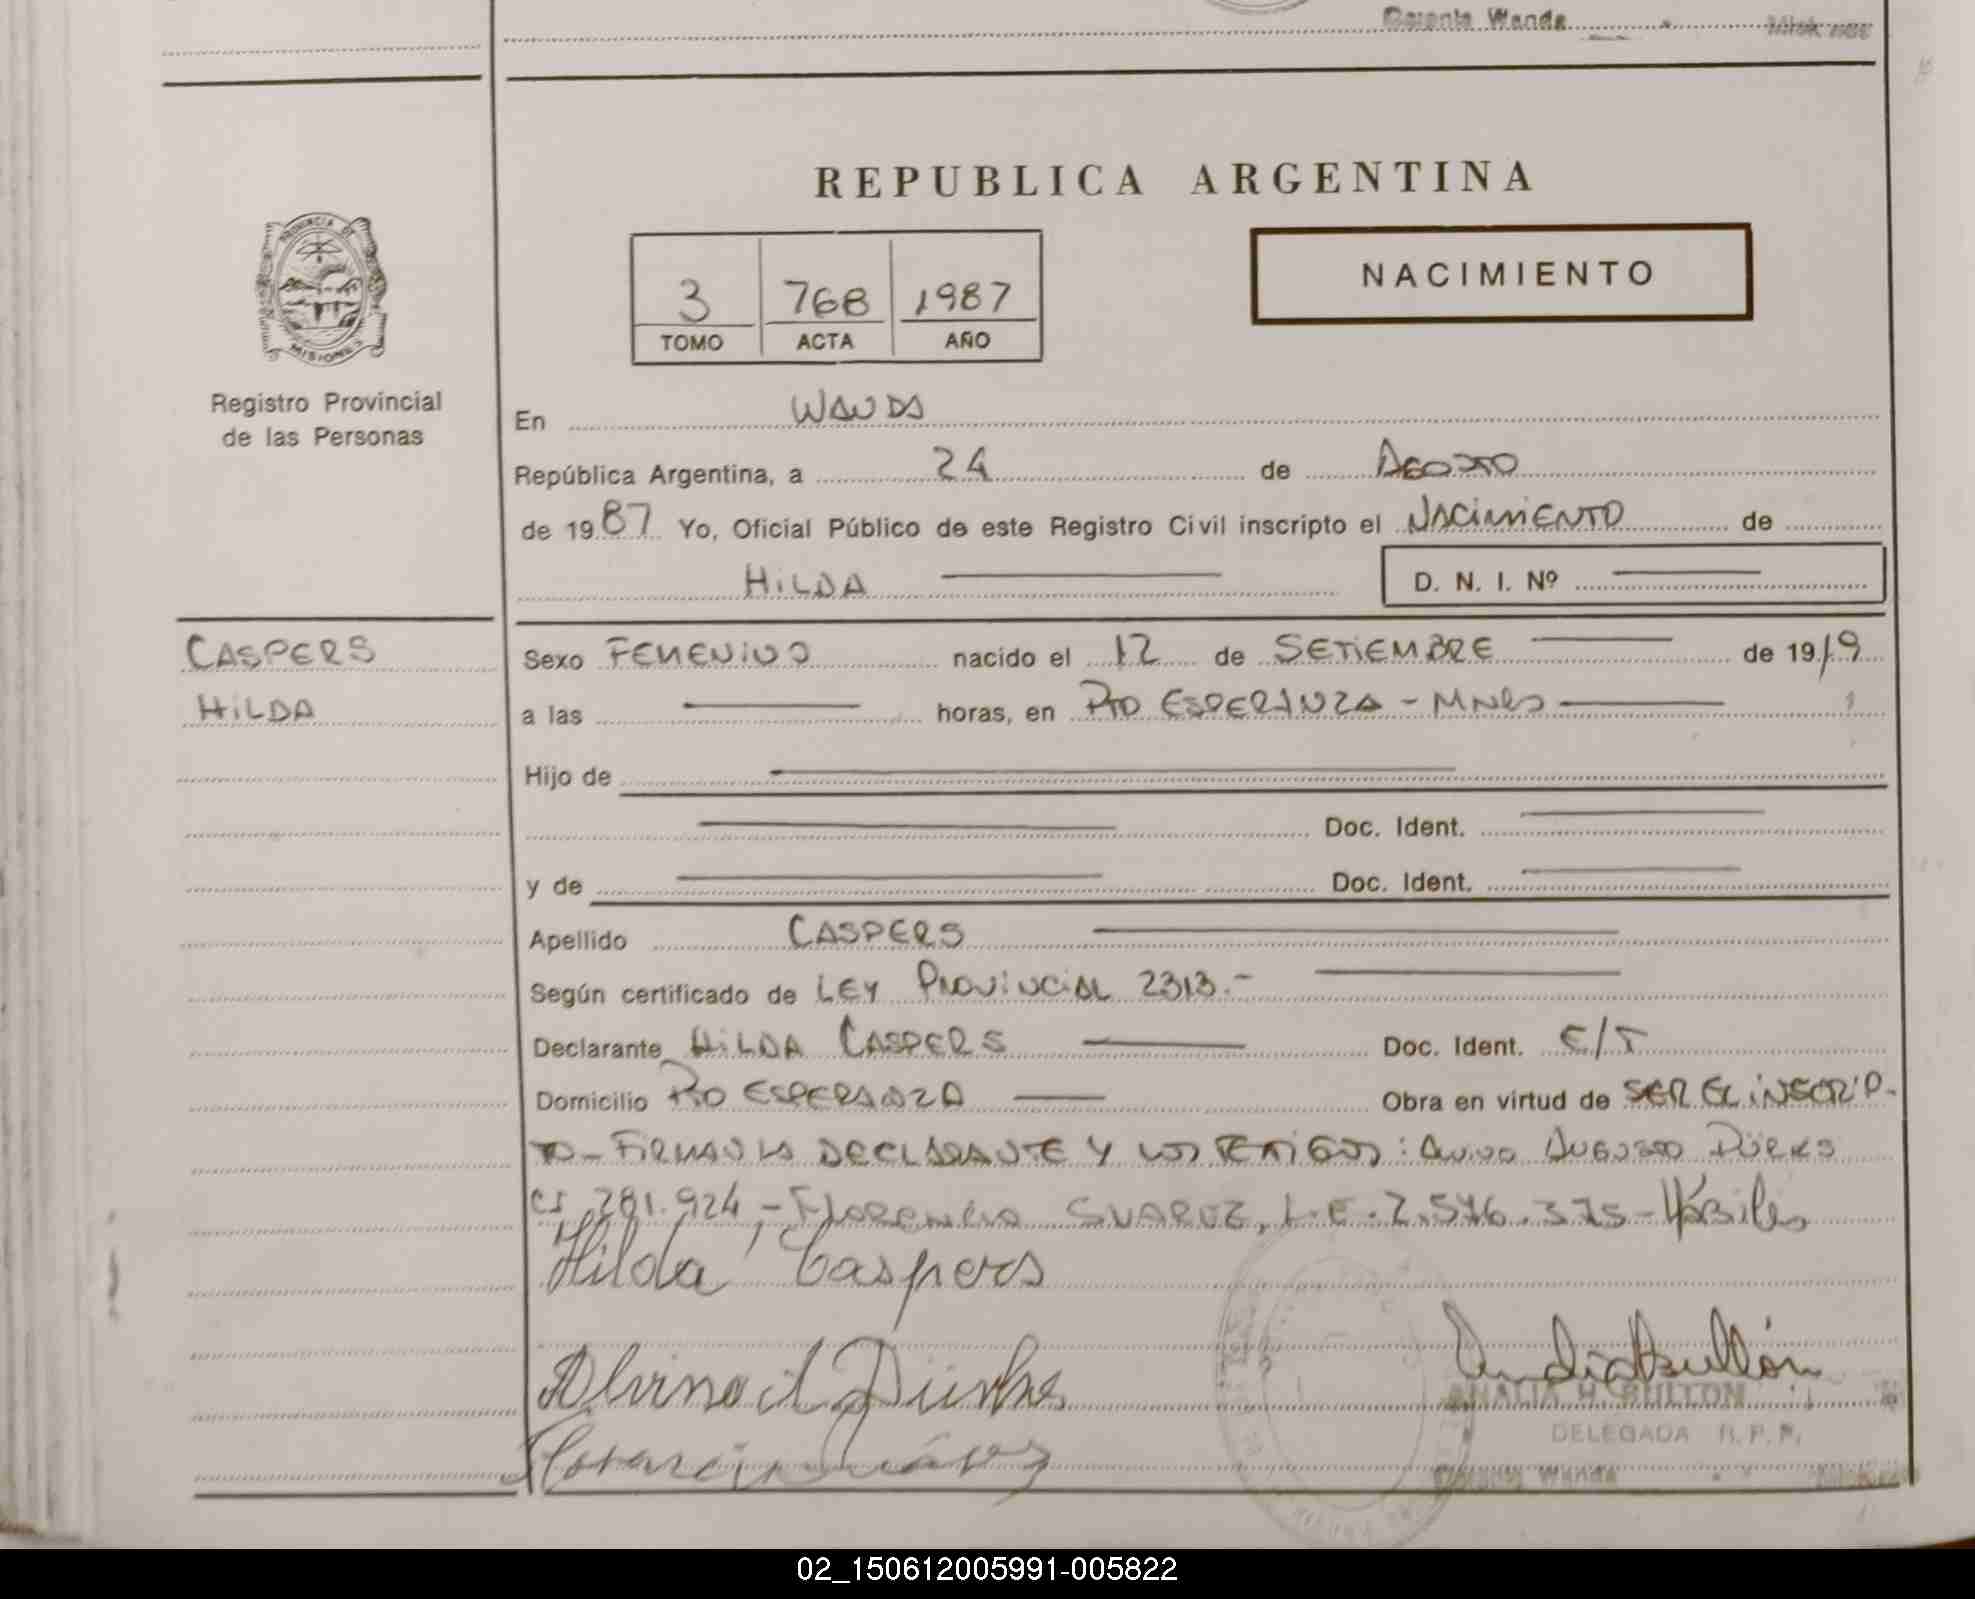 Wanda
REPUBLICA ARGENTINA
PROVINCIA DE
MISIONES
3 768 1987
TOMO ACTA AÑO
NACIMIENTO
Registro Provincial
de las Personas
En WANDA
República Argentina, a 24 de AGOSTO
de 1987 Yo, Oficial Público de este Registro Civil inscripto el NACIMIENTO de
HILDA D. N. I. Nº
CASPERS
HILDA
Sexo FEMENINO nacido el 12 de SETIEMBRE de 1919
a las horas, en PTO ESPERANZA - MNES
Hijo de
Doc. Ident.
y de Doc. Ident.
Apellido CASPERS
Según certificado de LEY PROVINCIAL 2313.-
Declarante HILDA CASPERS Doc. Ident. E/T
Domicilio PTO ESPERANZA Obra en virtud de SER EL INSCRIP-
TO - FIRMAN LA DECLARANTE Y LOS TESTIGOS: AUGUSTO DÜRKS
CI 281.924,- FLORENCIO SUAREZ, L.E. 2.576.375-
Hilda Caspers
Alvino A Dürks
ANALIA H. BULLON
DELEGADA R.P.P.
Wanda
02_150612005991-005822